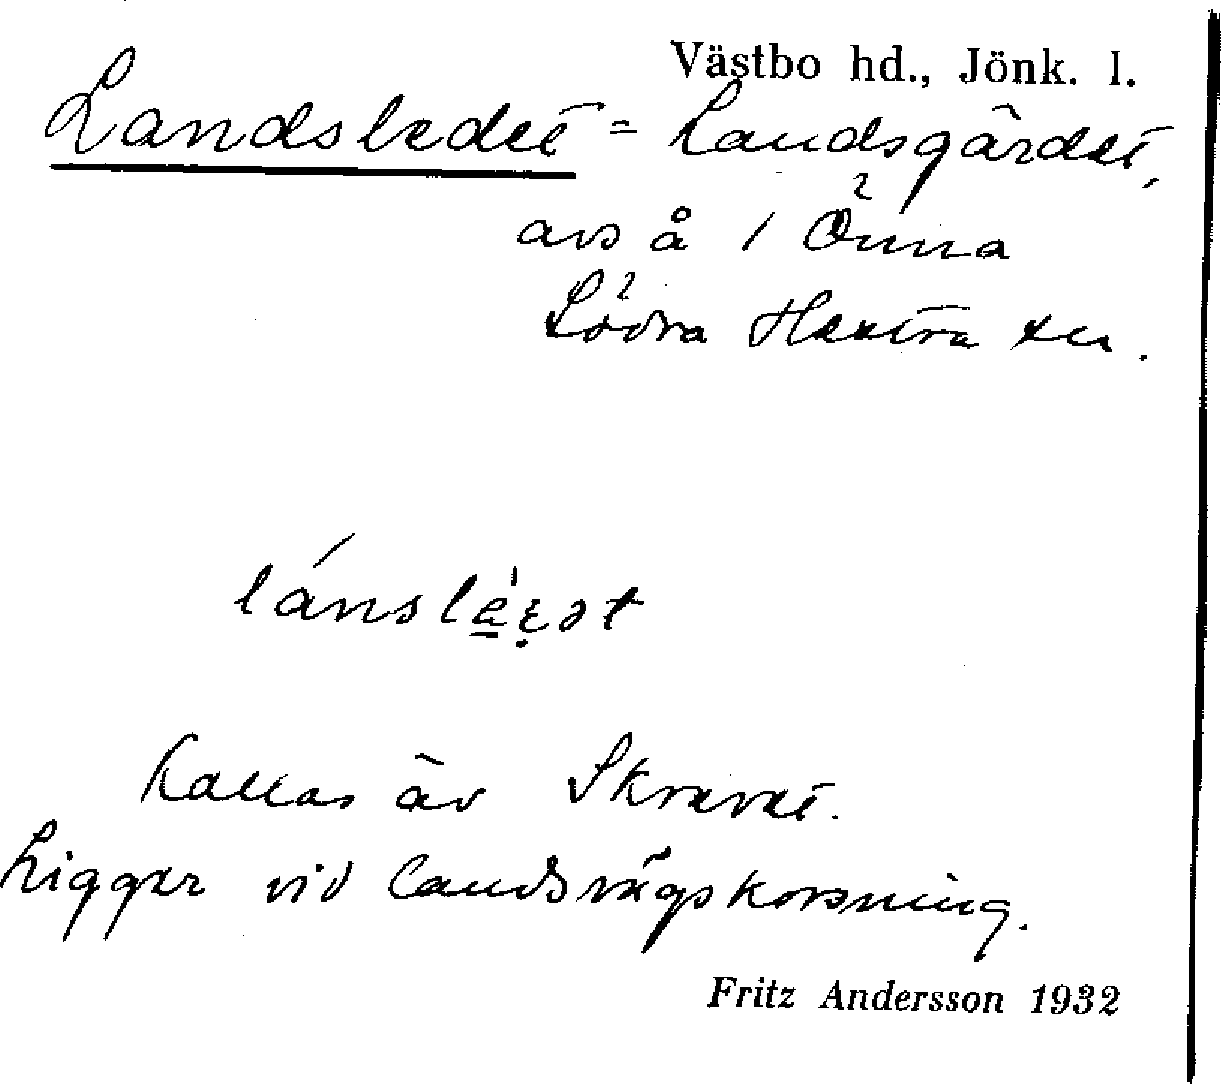 Västbo hd., Jönk. l.
Landsledet = Landsgärdet,
avs å / Önna
Södra Hestra sn.
lánslèɛ̣ət
Kallas äv Skravet.
Ligger vid landsvägskorsning.
Fritz Andersson 1932